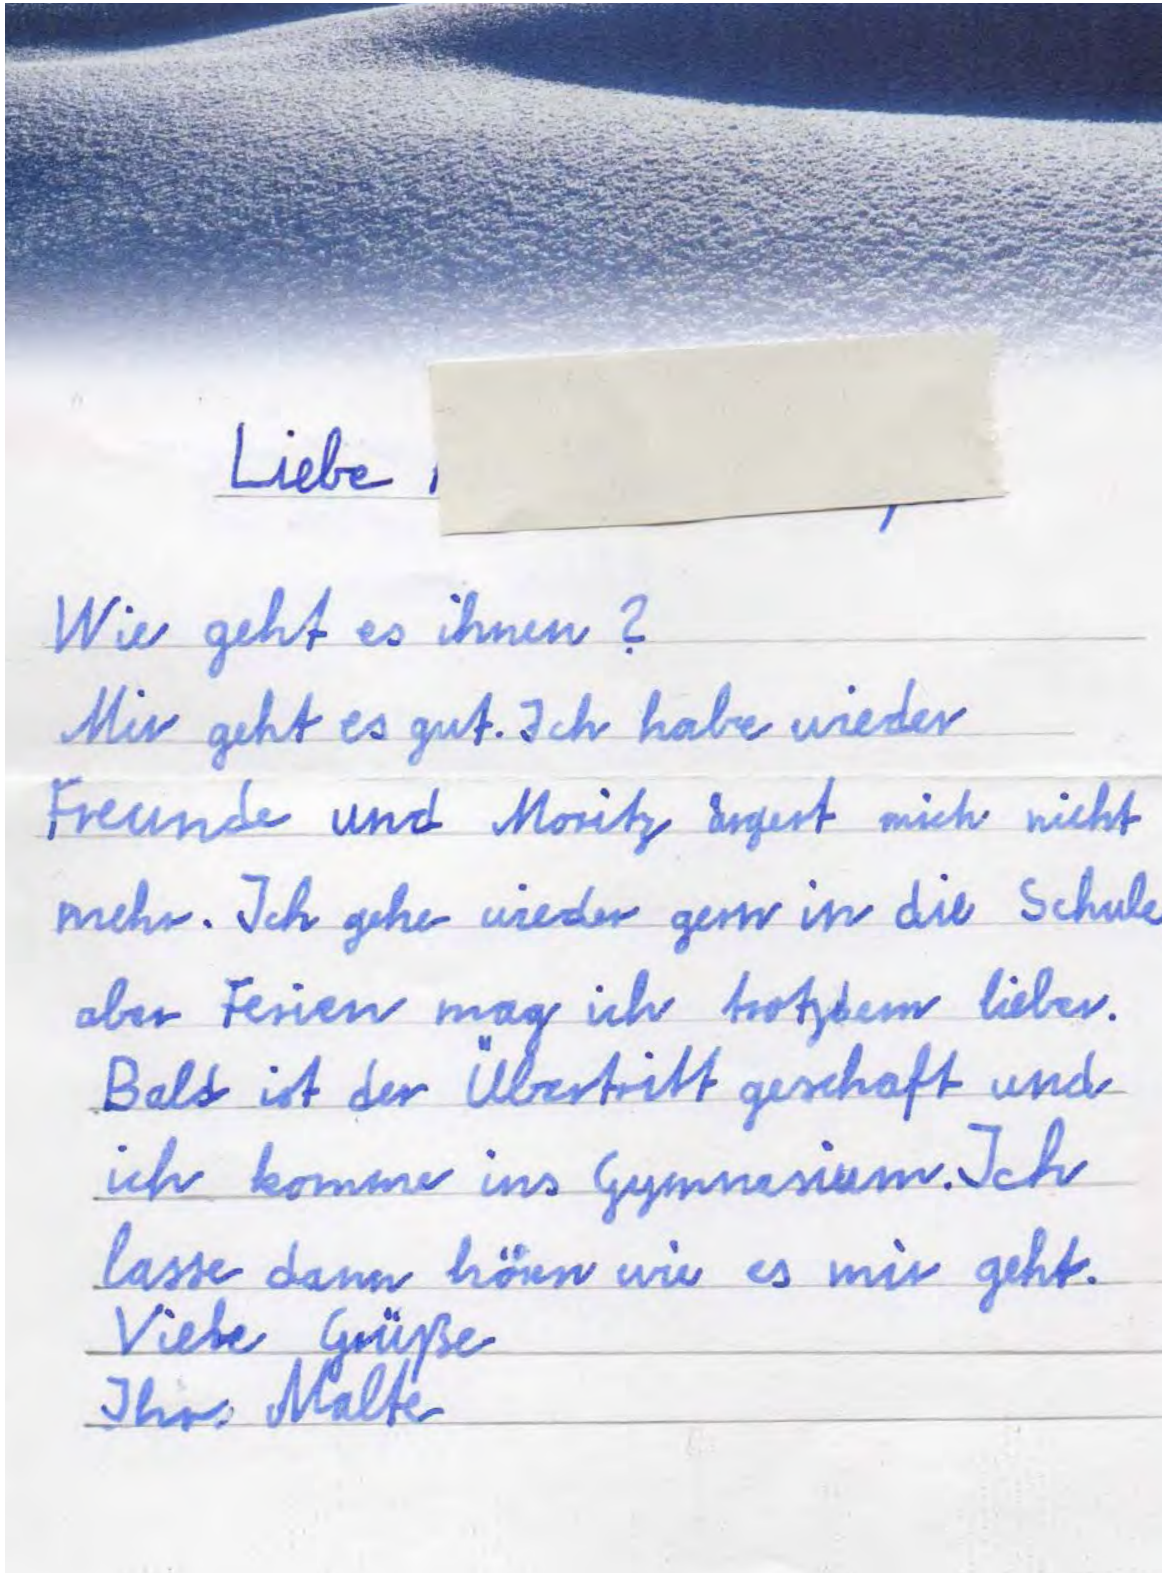 Liebe
Wie geht es ihnen ?
Mir geht es gut. Ich habe wieder
Freunde und Moritz ärgert mich nicht
mehr. Ich gehe wieder gern in die Schule
aber Ferien mag ich trotzdem lieber.
Bald ist der Übertritt geschaft und
ich komme ins Gymnasium. Ich
lasse dann hören wie es mir geht.
Viele Grüße
Ihr Malte